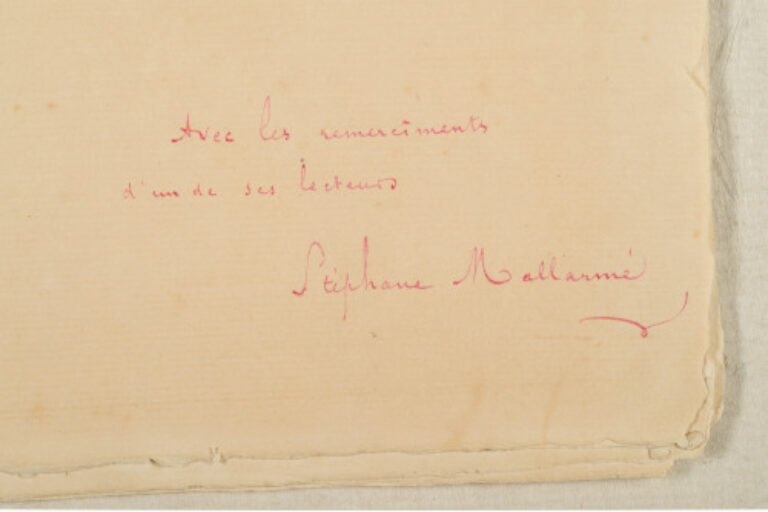 Avec les remercîments
d'un de ses lecteurs
Stéphane Mallarmé